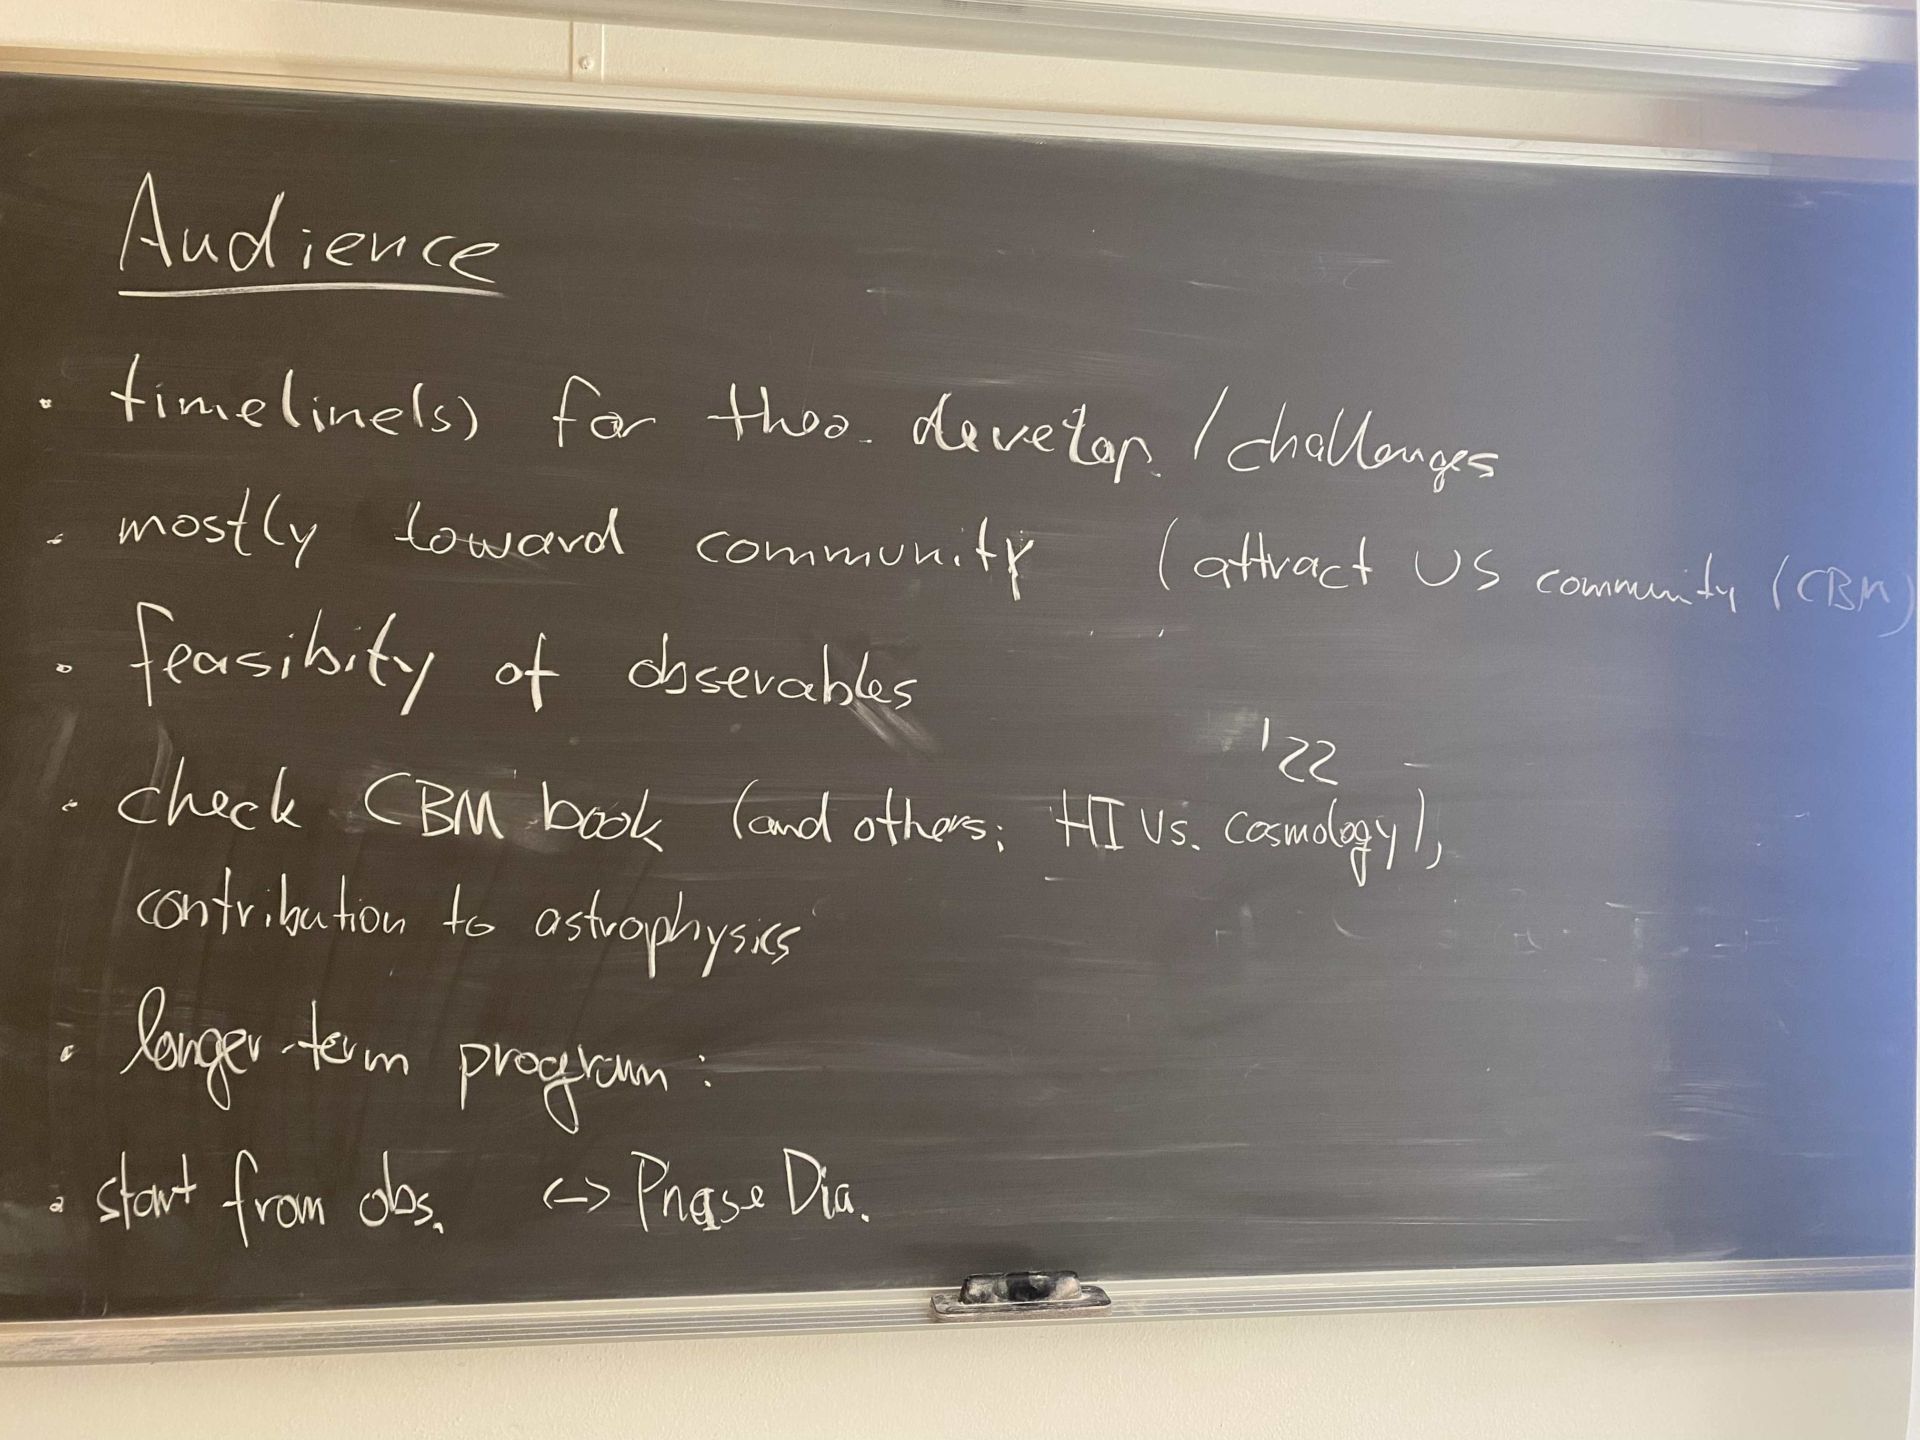 Audience
· timeline(s) for theo. develop. / challenges
· mostly toward community (attract US community (CBM)
· feasibity of obsevables
'22
· check CBM book (and others; HI vs. cosmology),
contribution to astrophysics
· longer-term program:
· start from obs. <-> Phase Dia.